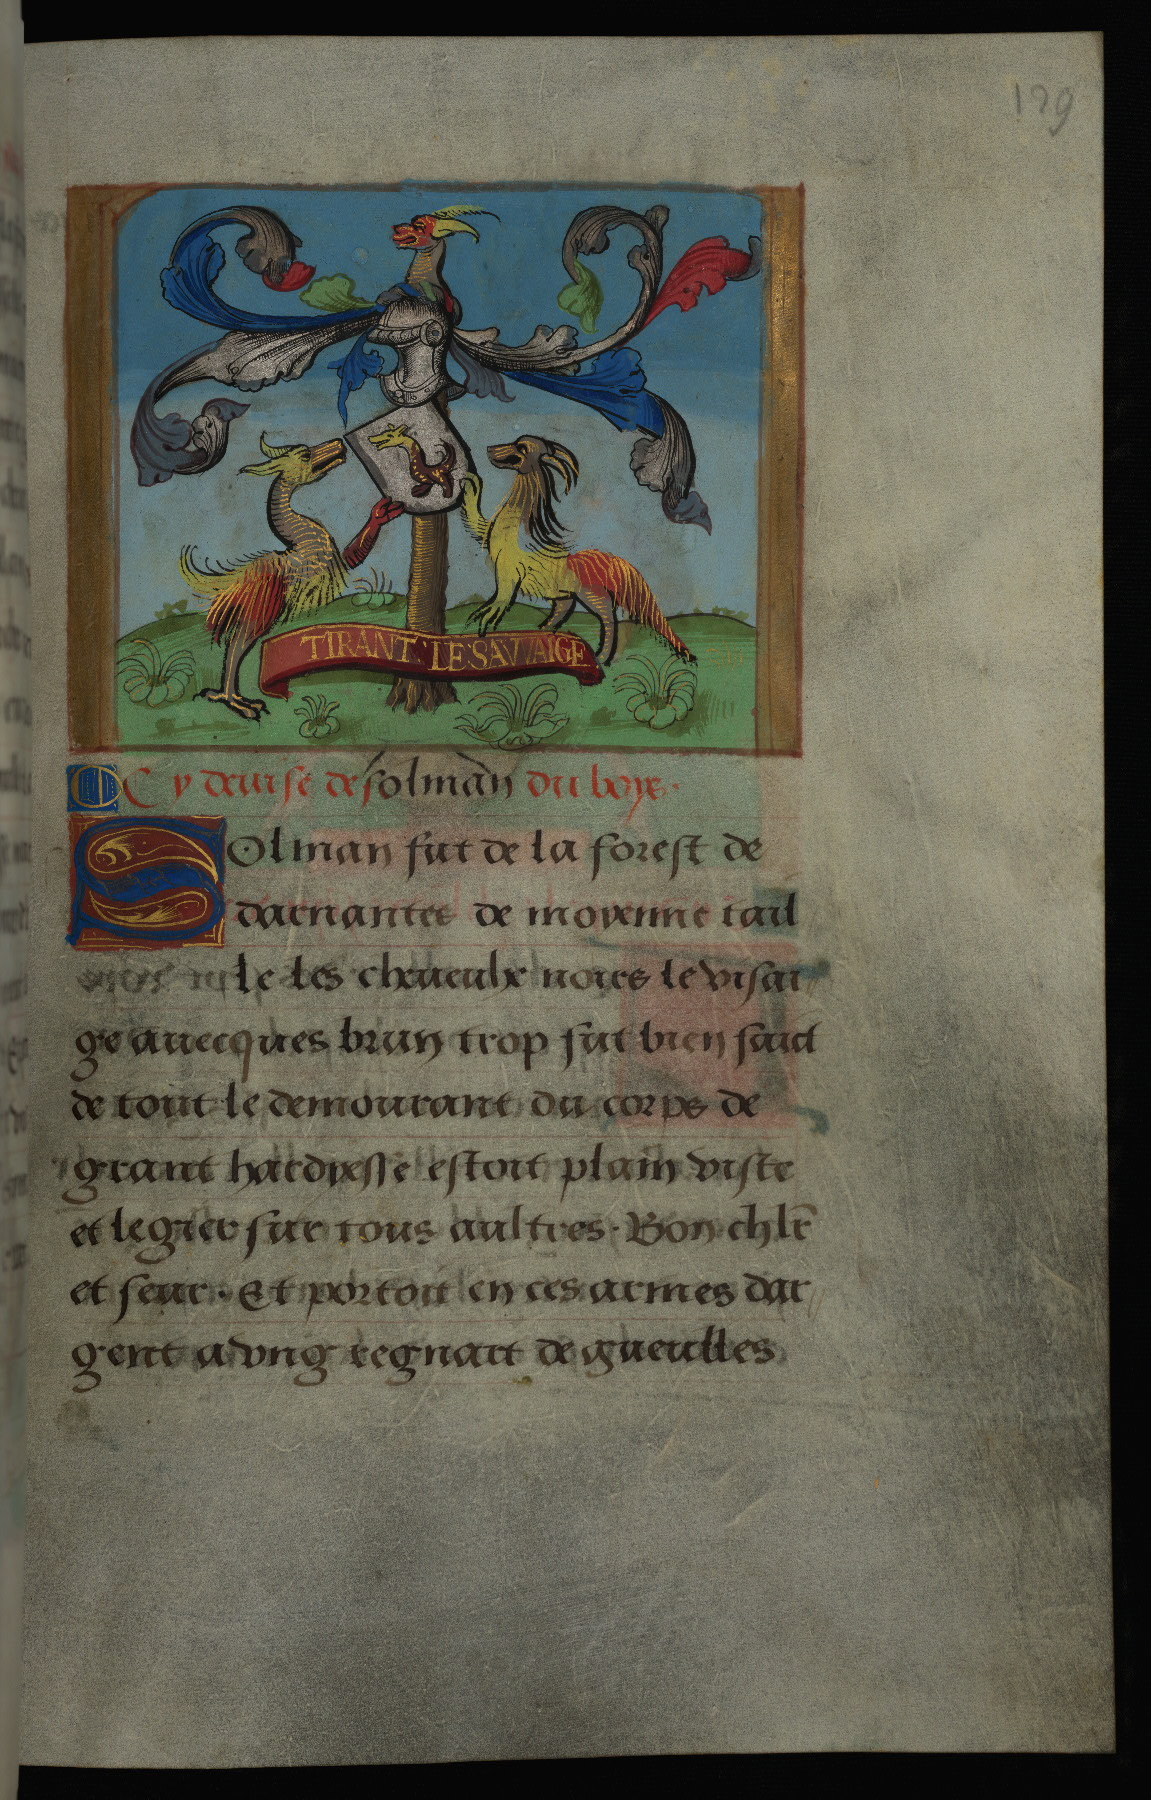 129
TIRANT LE SAVVAIGE
Cy deuise de solman du boys.
SOlman fut de la forest de
darnantes de moyenne tail
le les cheueulx noirs le visai
ge auecques brun trop fut bien faict
de tout le demourant du corps de
grant hardyesse estoit plain viste
et legier sur tous aultres. Bon chlr
et seur. Et portoit en ces armes dar
gent a vng regnart de gueulles